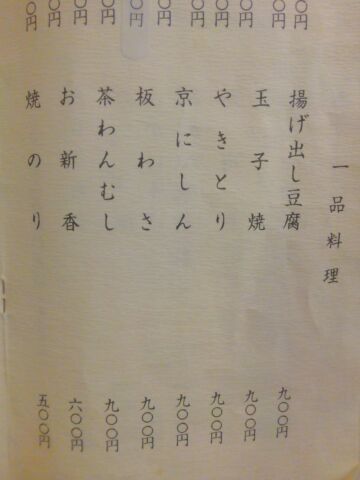 一品料理
揚げ出し豆腐 九〇〇円
玉子焼 九〇〇円
やきとり 九〇〇円
京にしん 九〇〇円
板わさ 九〇〇円
茶わんむし 九〇〇円
お新香 六〇〇円
焼のり 五〇〇円